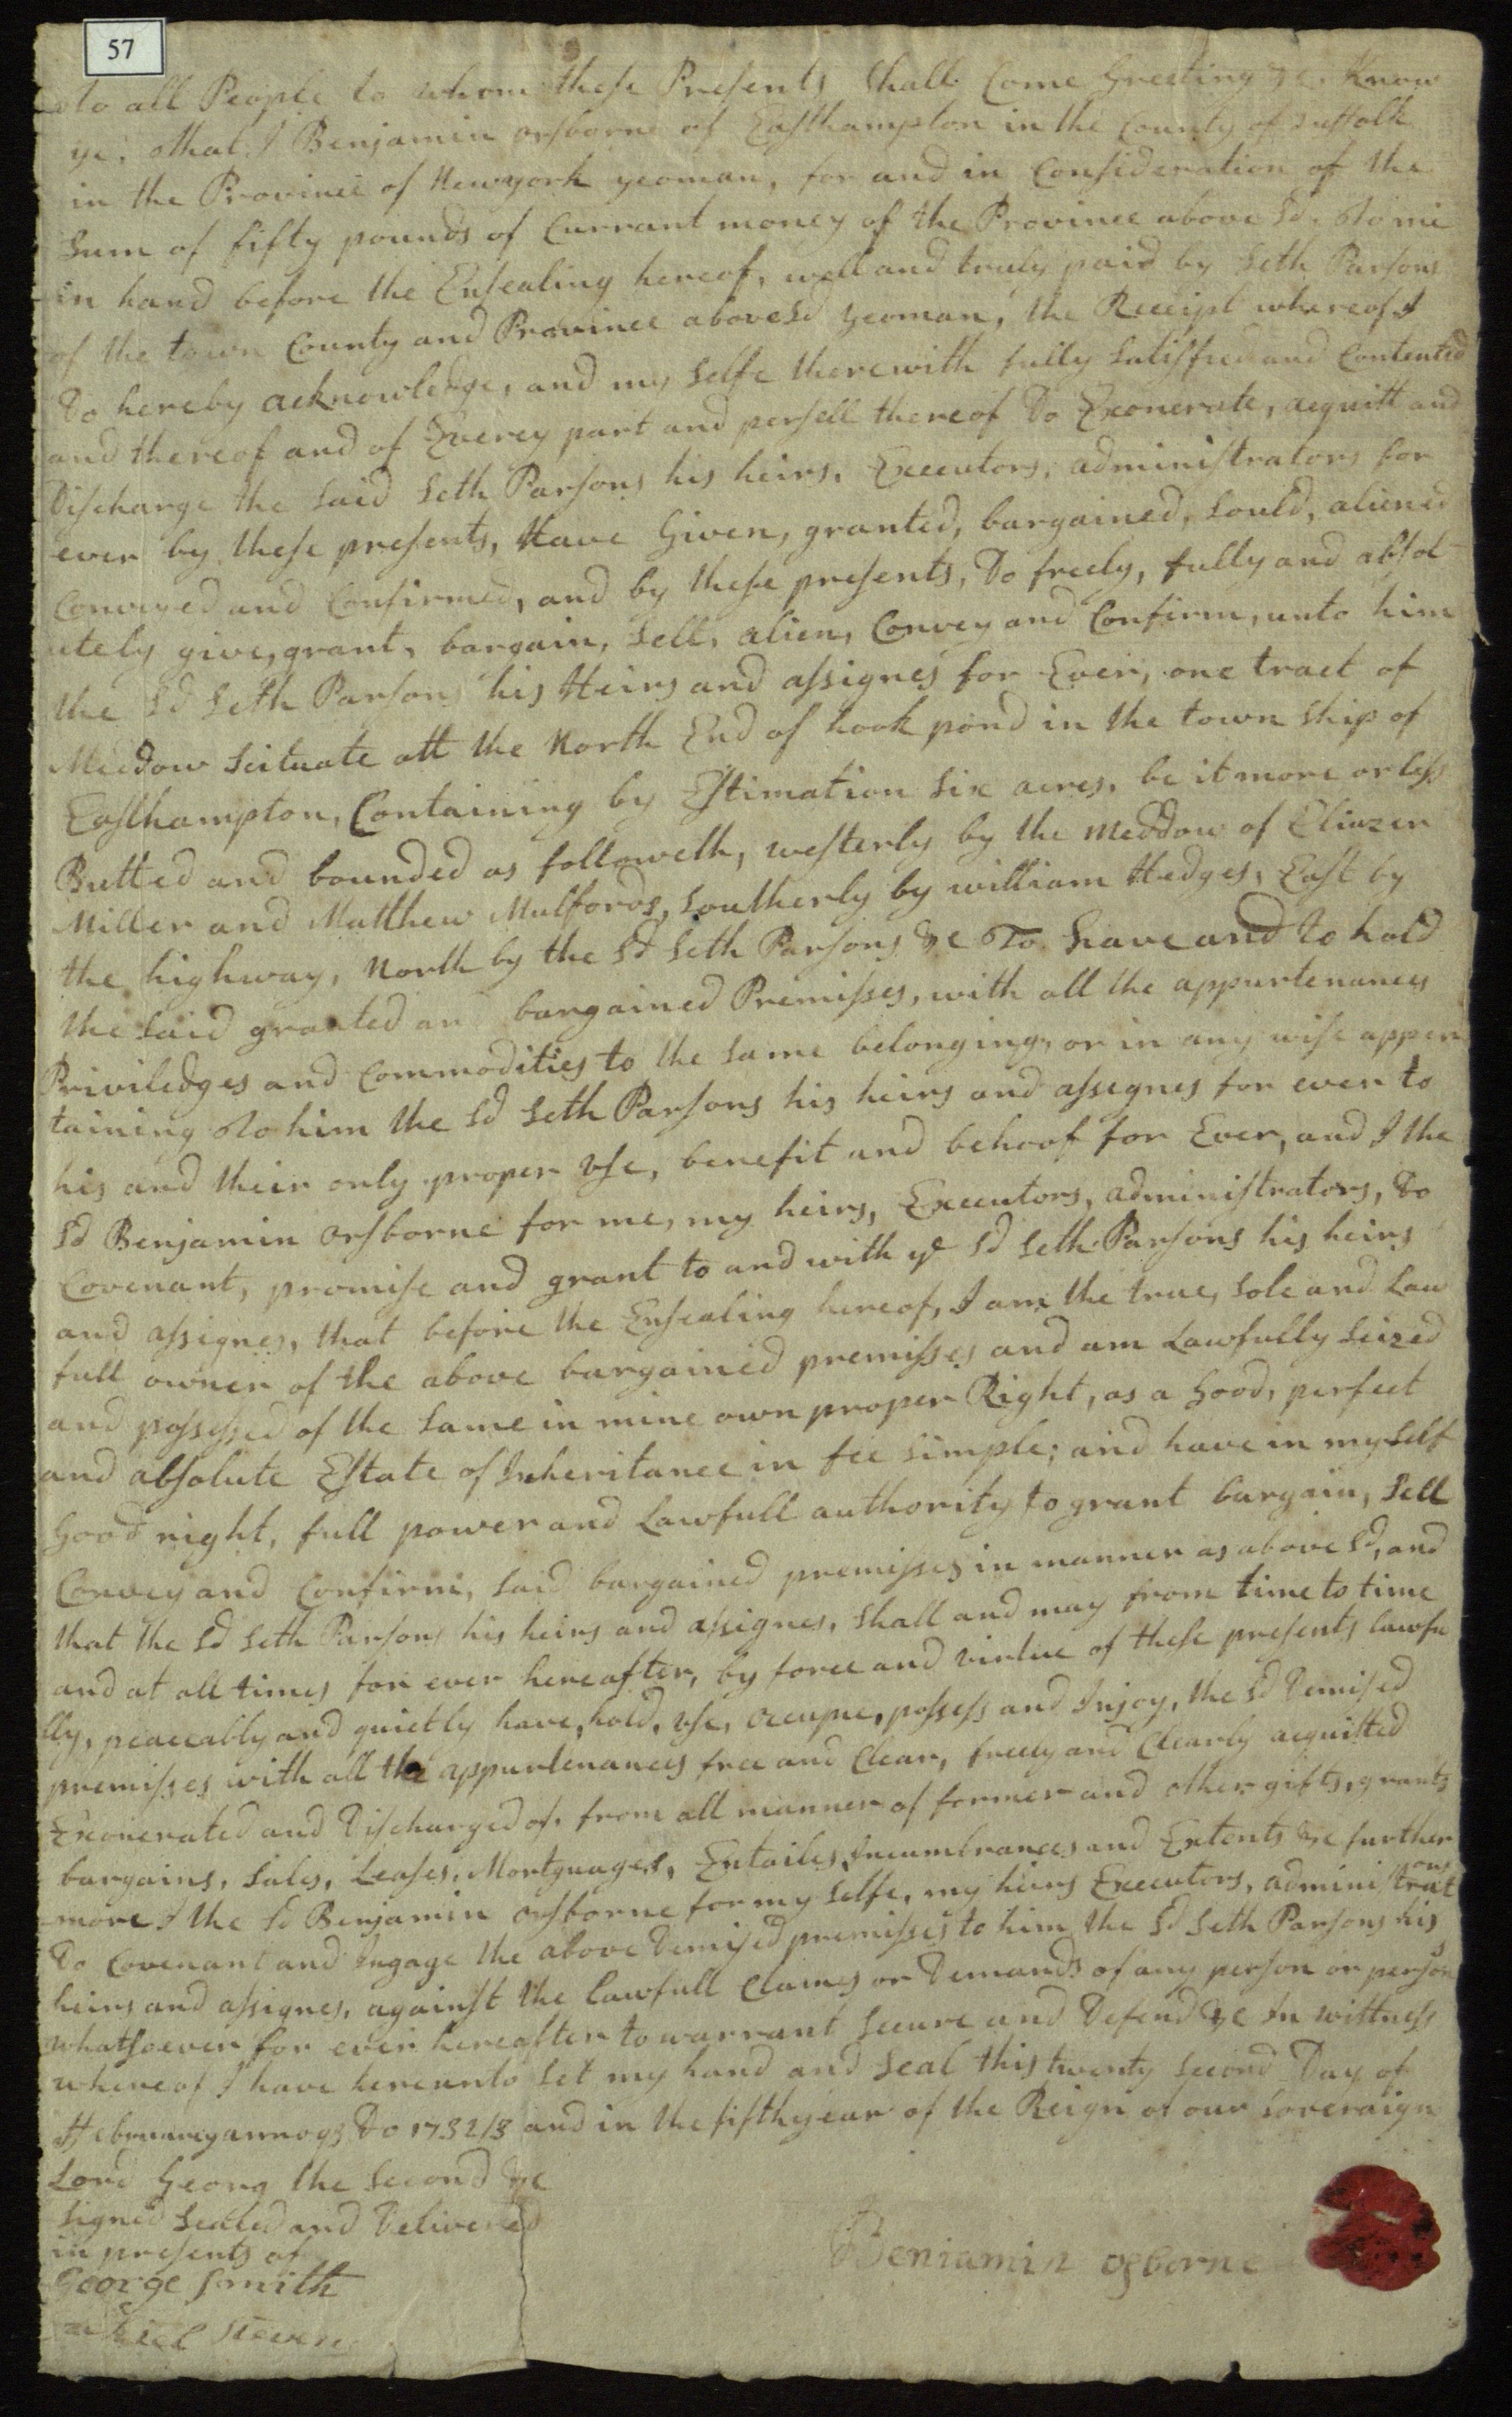 57
To all People to whom these Presents Shall Come Greeting &c. Know
ye, That I Benjamin orsborne of Easthampton in the County of Suffolk
in the Province of Newyork yeoman, for and in Consideration of the
Sum of fifty pounds of Currant money of the Province above Sd. To me
in hand before the Ensealing hereof, well and truly paid by Seth Parsons
of the town County and Province aboveSd yeoman, the Receipt whereof I
Do hereby acknowledge, and my Selfe therewith fully Satisfied and Contented
and thereof and of Everey part and persell thereof Do Exonerate, acquitt and
Discharge the Said Seth Parsons his heirs, Executors, administrators for
ever by these presents, Have Given, granted, bargained, Sould, aliened
Conveyed and Confirmed, and by these presents, Do freely, fully and absol
utely give, grant, bargain, Sell, alien, Convey and Confirm, unto him
the Sd Seth Parsons his Heirs and assignes for Ever, one tract of
Meddow Scituate att the North End of hook pond in the town Ship of
Easthampton, Containing by Estimation Six acres, be it more or less
Butted and bounded as followeth, westerly by the Meddow of Eliazer
Miller and Matthew Mulfords, Southerly by william Hedges, East by
the highway, North by the Sd Seth Parsons &c To have and To hold
the Said granted an bargained Premisses, with all the appurtenances
Priviledges and Commodities to the Same belonging, or in any wise apper
taining To him the Sd Seth Parsons his heirs and assignes for ever to
his and their only proper Use, benefit and behoof for Ever, and I the
Sd Benjamin orsborne for me, my heirs, Executors, administrators, Do
Covenant, promise and grant to and with ye Sd Seth Parsons his heirs
and assignes, that before the Ensealing hereof, I am the true, Sole and Law
full owner of the above bargained premisses and am Lawfully Seized
and possessed of the Same in mine own proper Right, as a Good, perfect
and absolute Estate of Inheritance in fee Simple; and have in my Self
Good right, full power and Lawfull authority to grant bargain, Sell
Convey and Confirm, Said bargained premisses in manner as above Sd, and
that the Sd Seth Parsons his heirs and assignes, Shall and may from time to time
and at all times for ever hereafter, by force and virtue of these presents lawfu
lly, peaceably and quietly have, hold, Use, occupue, possess and Injoy, the Sd Demised
premisses with all the appurtenances free and Clear, freely and Clearly acquitted
Exonerated and Discharged of, from all manner of former and other gifts, grants
bargains, Sales, Leases, Mortguages, Entailes, Incumbrances and Extents &c further
more I the Sd Benjamin orsborne for my Selfe, my heirs Executors, administrators
Do Covenant and Ingage the above Demised premisses to him the Sd Seth Parsons his
heirs and assignes, against the lawfull Claims or Demands of any person or persons
whatsoever for ever hereafter to warrant Secure and Defend &c In wittness
whereof I have hereunto Set my hand and Seal this twenty Second Day of
February annoqs Do 1732/3 and in the fifth year of the Reign of our Soveraign
Lord Georg the Second &c
Signed Sealed and Delivered
in presents of
George Smith
Beniamin osborne